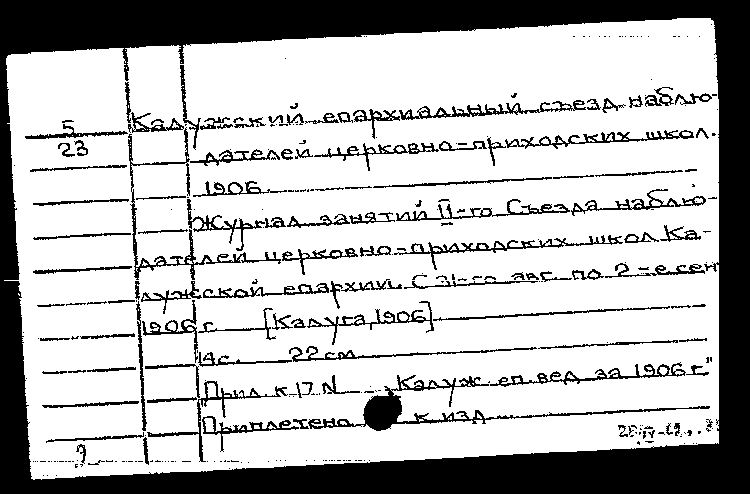 5
23
Калужский епархиальный съезд наблю-
дателей церковно-приходских школ.
1906.
Журнал занятий II-го Съезда наблю-
дателей церковно-приходских школ Ка-
лужской епархии. С 31-го авг. по 2-е сен
1906 г. [Калуга, 1906]
14 с. 22 см
"Прил. к 17 N "Калуж. еп. вед. за 1906 г."
"Приплетено к изд.